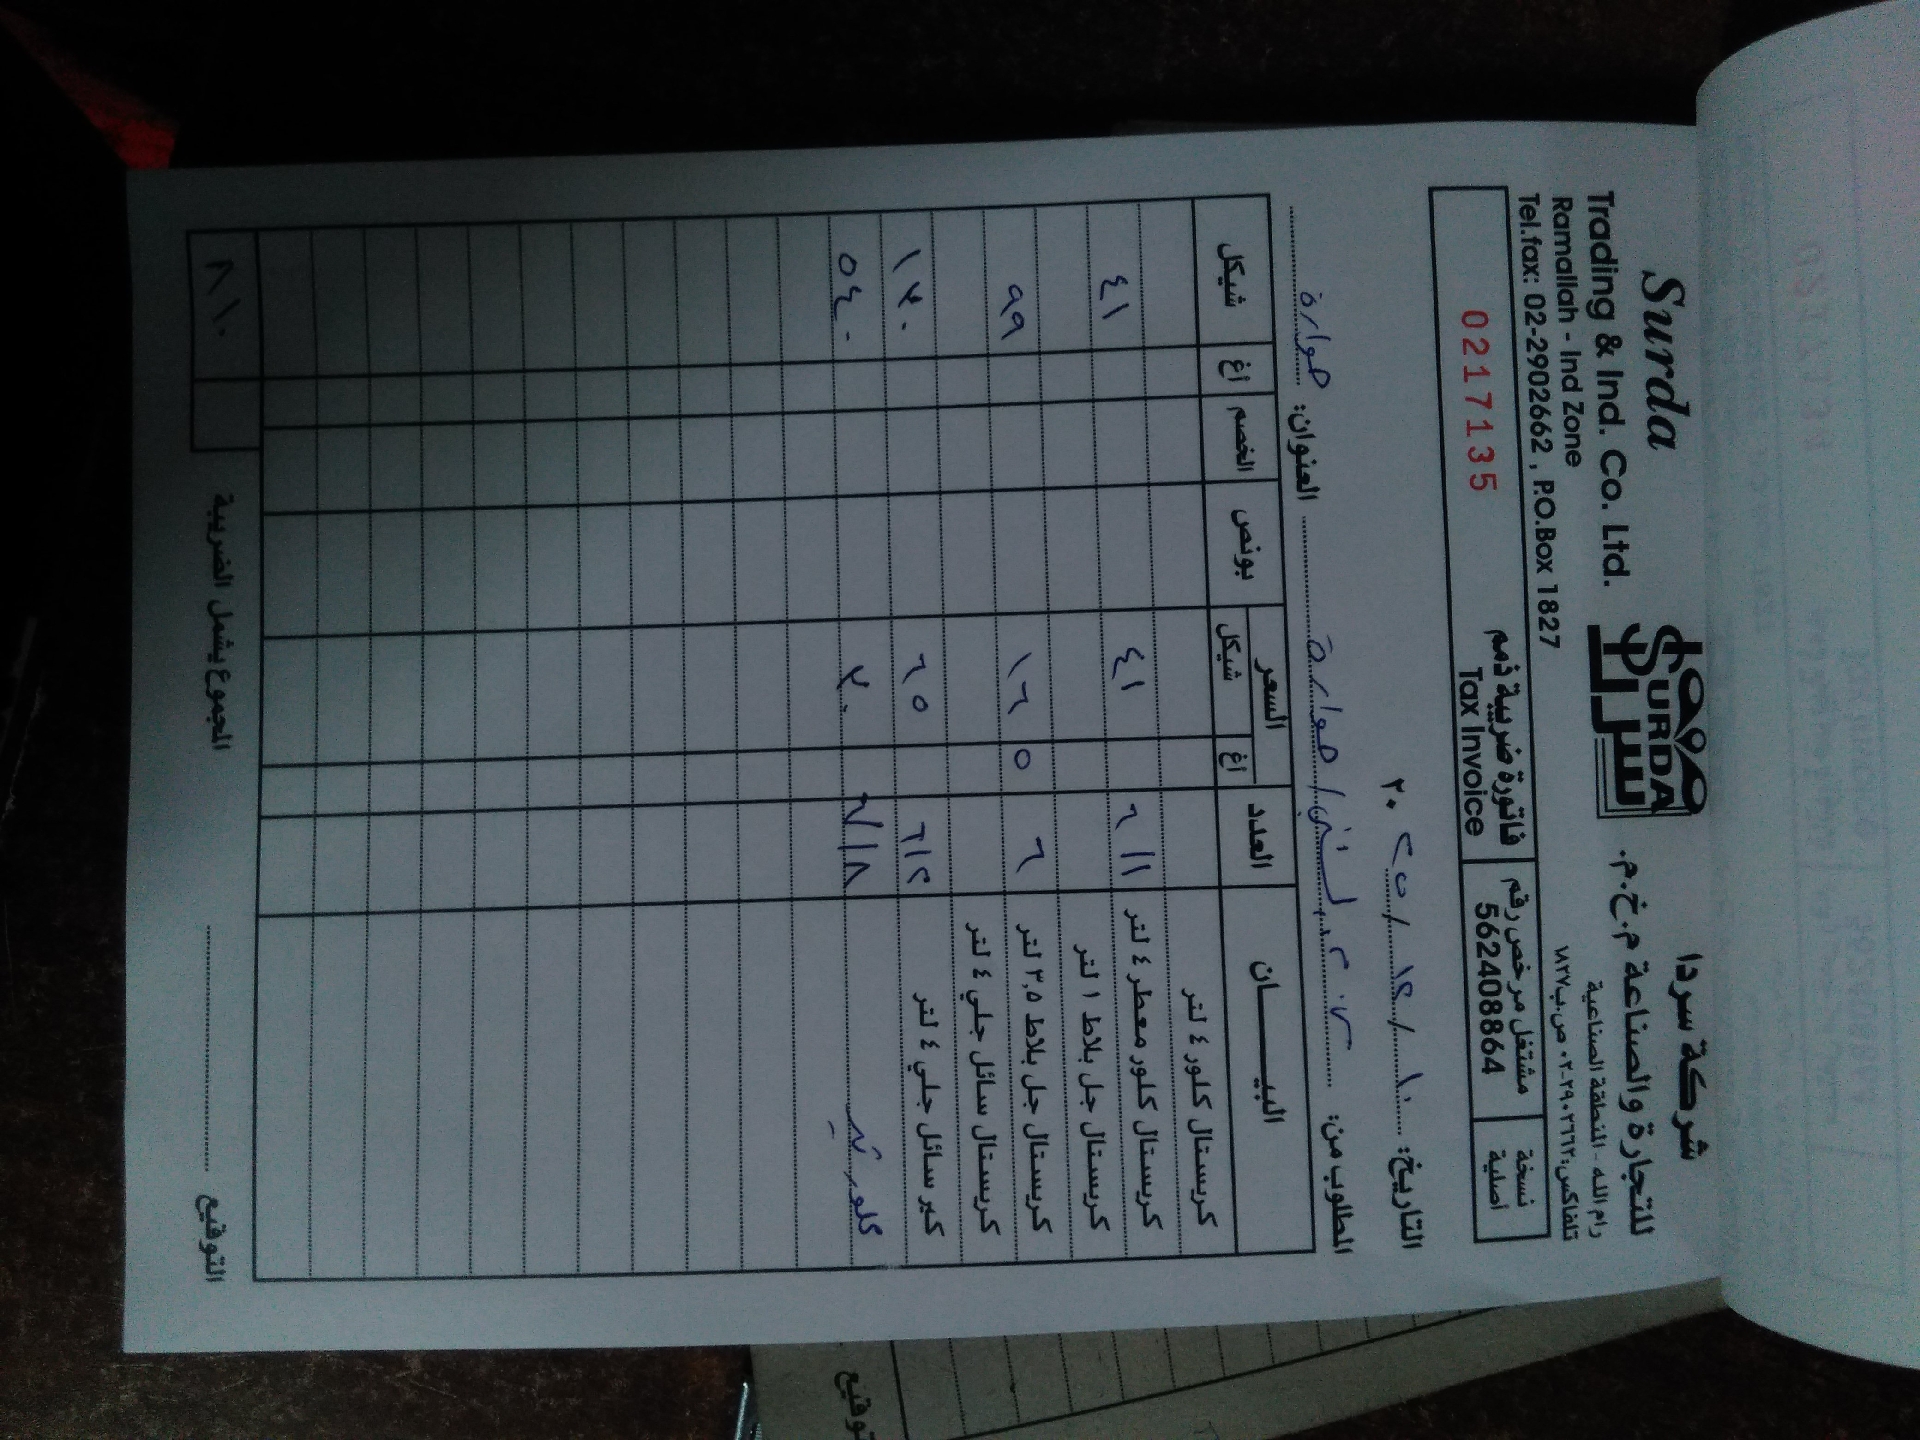 Surda
Trading & Ind. Co. Ltd.
Ramallah - Ind Zone
Tel.fax: 02-2902662 , P.O.Box 1827
SURDA
سردا
شركة سردا
للتجارة والصناعة م.خ.م.
رام الله - المنطقة الصناعية
تلفاكس: ٢٩٠٢٦٦٢-٠٢ ص.ب ١٨٢٧
نسخة اصلية
مشتغل مرخص رقم
562408864
فاتورة ضريبة ذمم
Tax Invoice
0217135
التاريخ: ١٠ / ١٢ / ٢٥ ٢٠
المطلوب من: حوارة العنوان: حوارة
البيــــــان العدد السعر شيكل اغ بونص الخصم شيكل اغ
كريستال كلور ٤ لتر
كريستال كلور معطر ٤ لتر ٦/١ ٤١ ٤١
كريستال جل بلاط ١ لتر
كريستال جل بلاط ٣,٥ لتر ٦ ١٦ ٥ ٩٩
كريستال سائل جلي ٤ لتر
كير سائل جلي ٤ لتر ٦/٢ ٦٥ ١٣٠
كلور ٦/١٨ ٣٠ ٥٤٠
المجموع يشمل الضريبة ٨١٠
التوقيع
توقيع